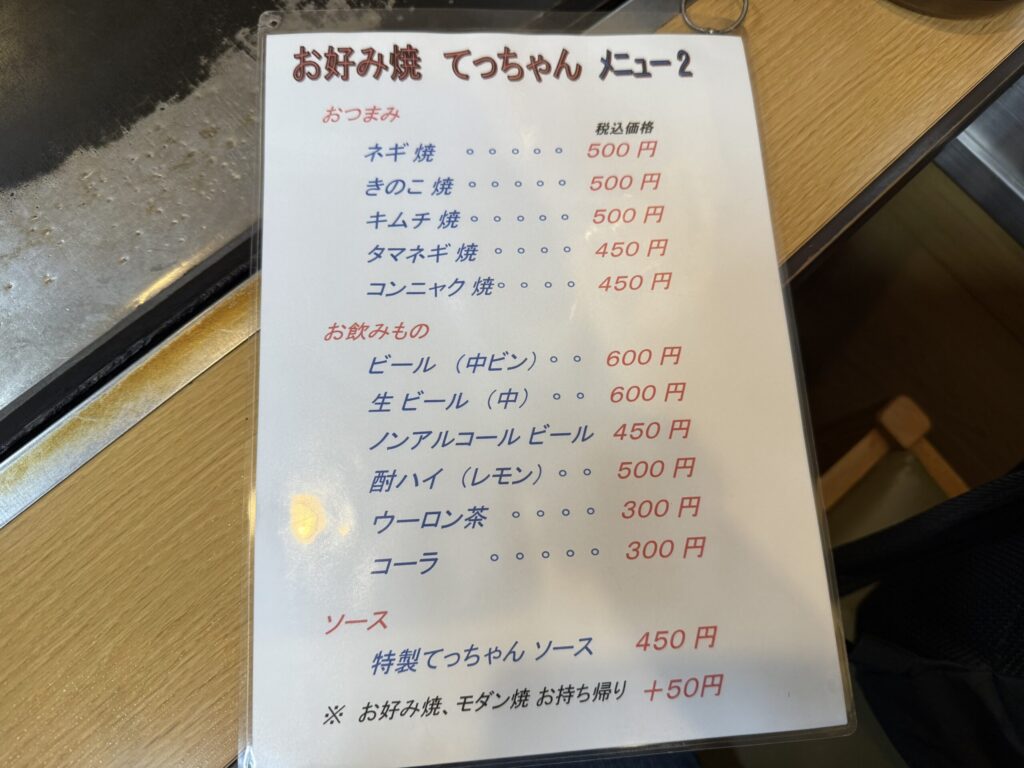 お好み焼 てっちゃん メニュー2
おつまみ
税込価格
ネギ 焼 。。。。。 500 円
きのこ 焼 。。。。。 500 円
キムチ 焼 。。。。。 500 円
タマネギ 焼 。。。。 450 円
コンニャク 焼。。。。 450 円
お飲みもの
ビール (中ビン)。。 600 円
生 ビール (中) 。。 600 円
ノンアルコール ビール 450 円
酎ハイ (レモン)。。 500 円
ウーロン茶 。。。。 300 円
コーラ 。。。。。 300 円
ソース
特製てっちゃん ソース 450 円
※ お好み焼、モダン焼 お持ち帰り +50円